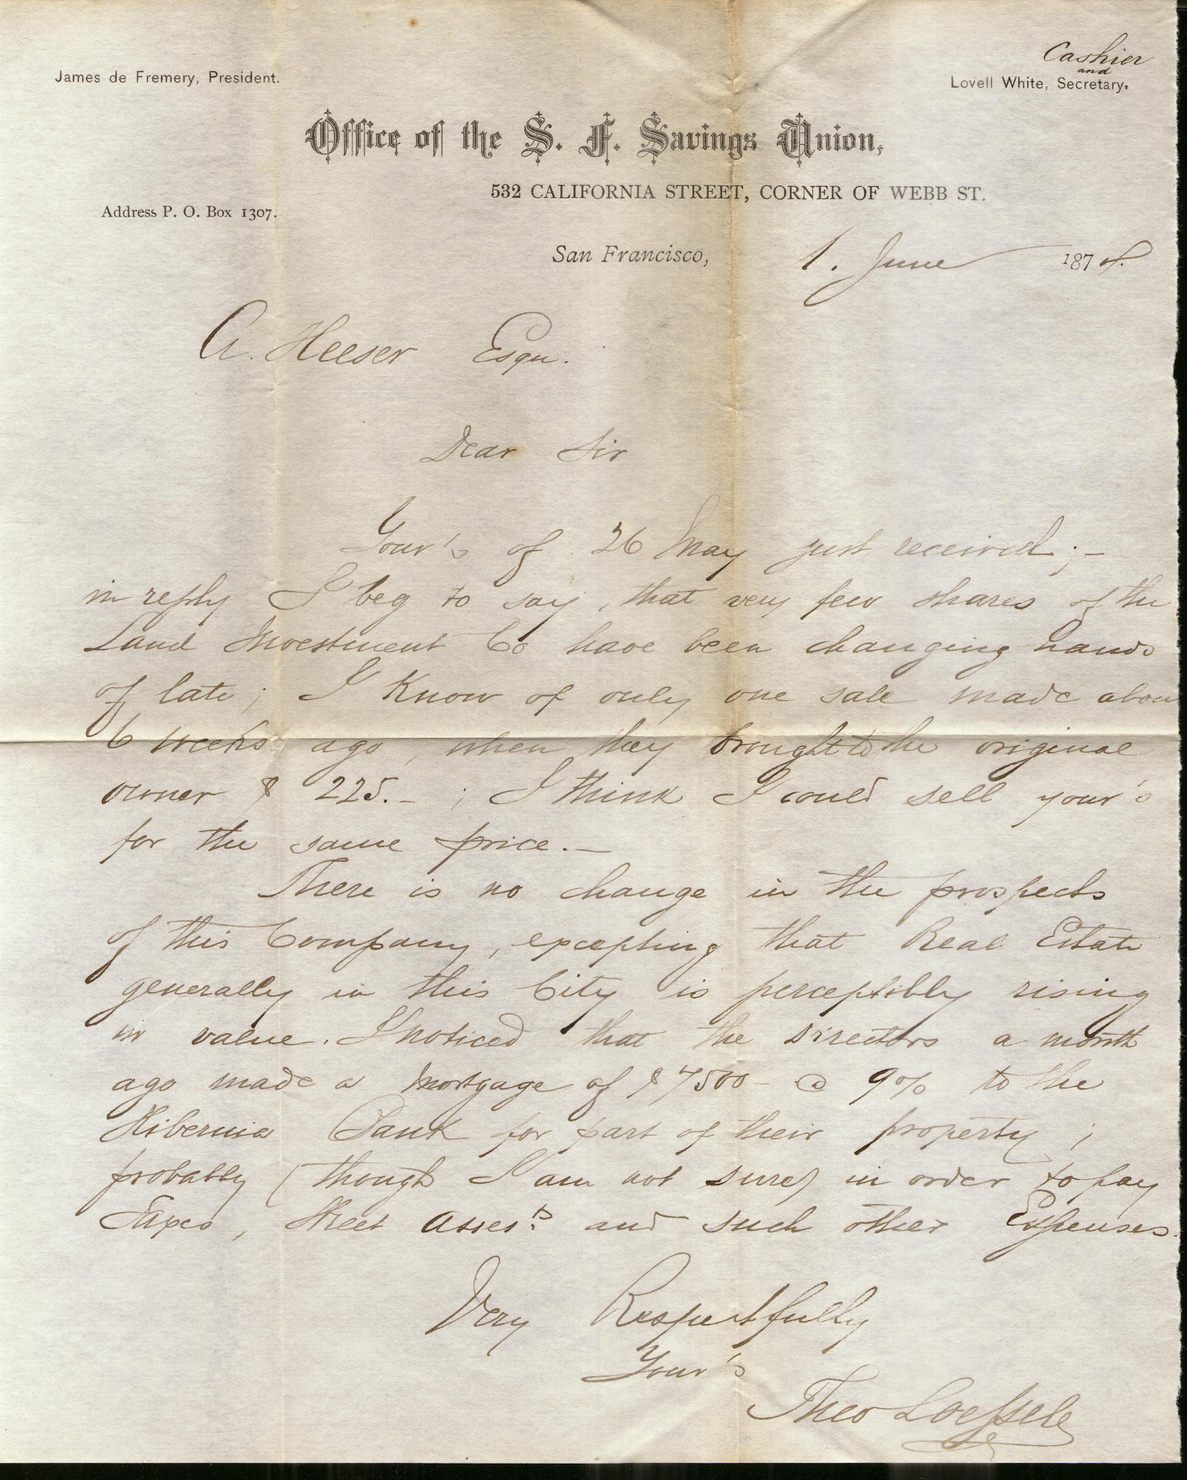 Cashier
and
James de Fremery, President.
Lovell White, Secretary.
Office of the S. F. Savings Union,
532 CALIFORNIA STREET, CORNER OF WEBB ST.
Address P. O. Box 1307.
San Francisco, 1. June 187
A. Heeser Esqu.
Dear Sir
Your's of 26 May just received; –
in reply I beg to say, that very few shares of the
Land Investment Co have been changing hands
of late; I know of only one sale made about
6 weeks ago, when they brought to the original
owner $ 225. – ; I think I could sell your's
for the same price. –
There is no change in the prospects
of this Company, excepting that Real Estate
generally in this City is perceptibly rising
in value. I noticed that the Directors a month
ago made a mortgage of $7500 – @ 9% to the
Hibernia Bank for part of their property;
probably (though I am not sure) in order to pay
Taxes, Street Assests and such other Expenses.
Very Respectfully
Your's
Theo